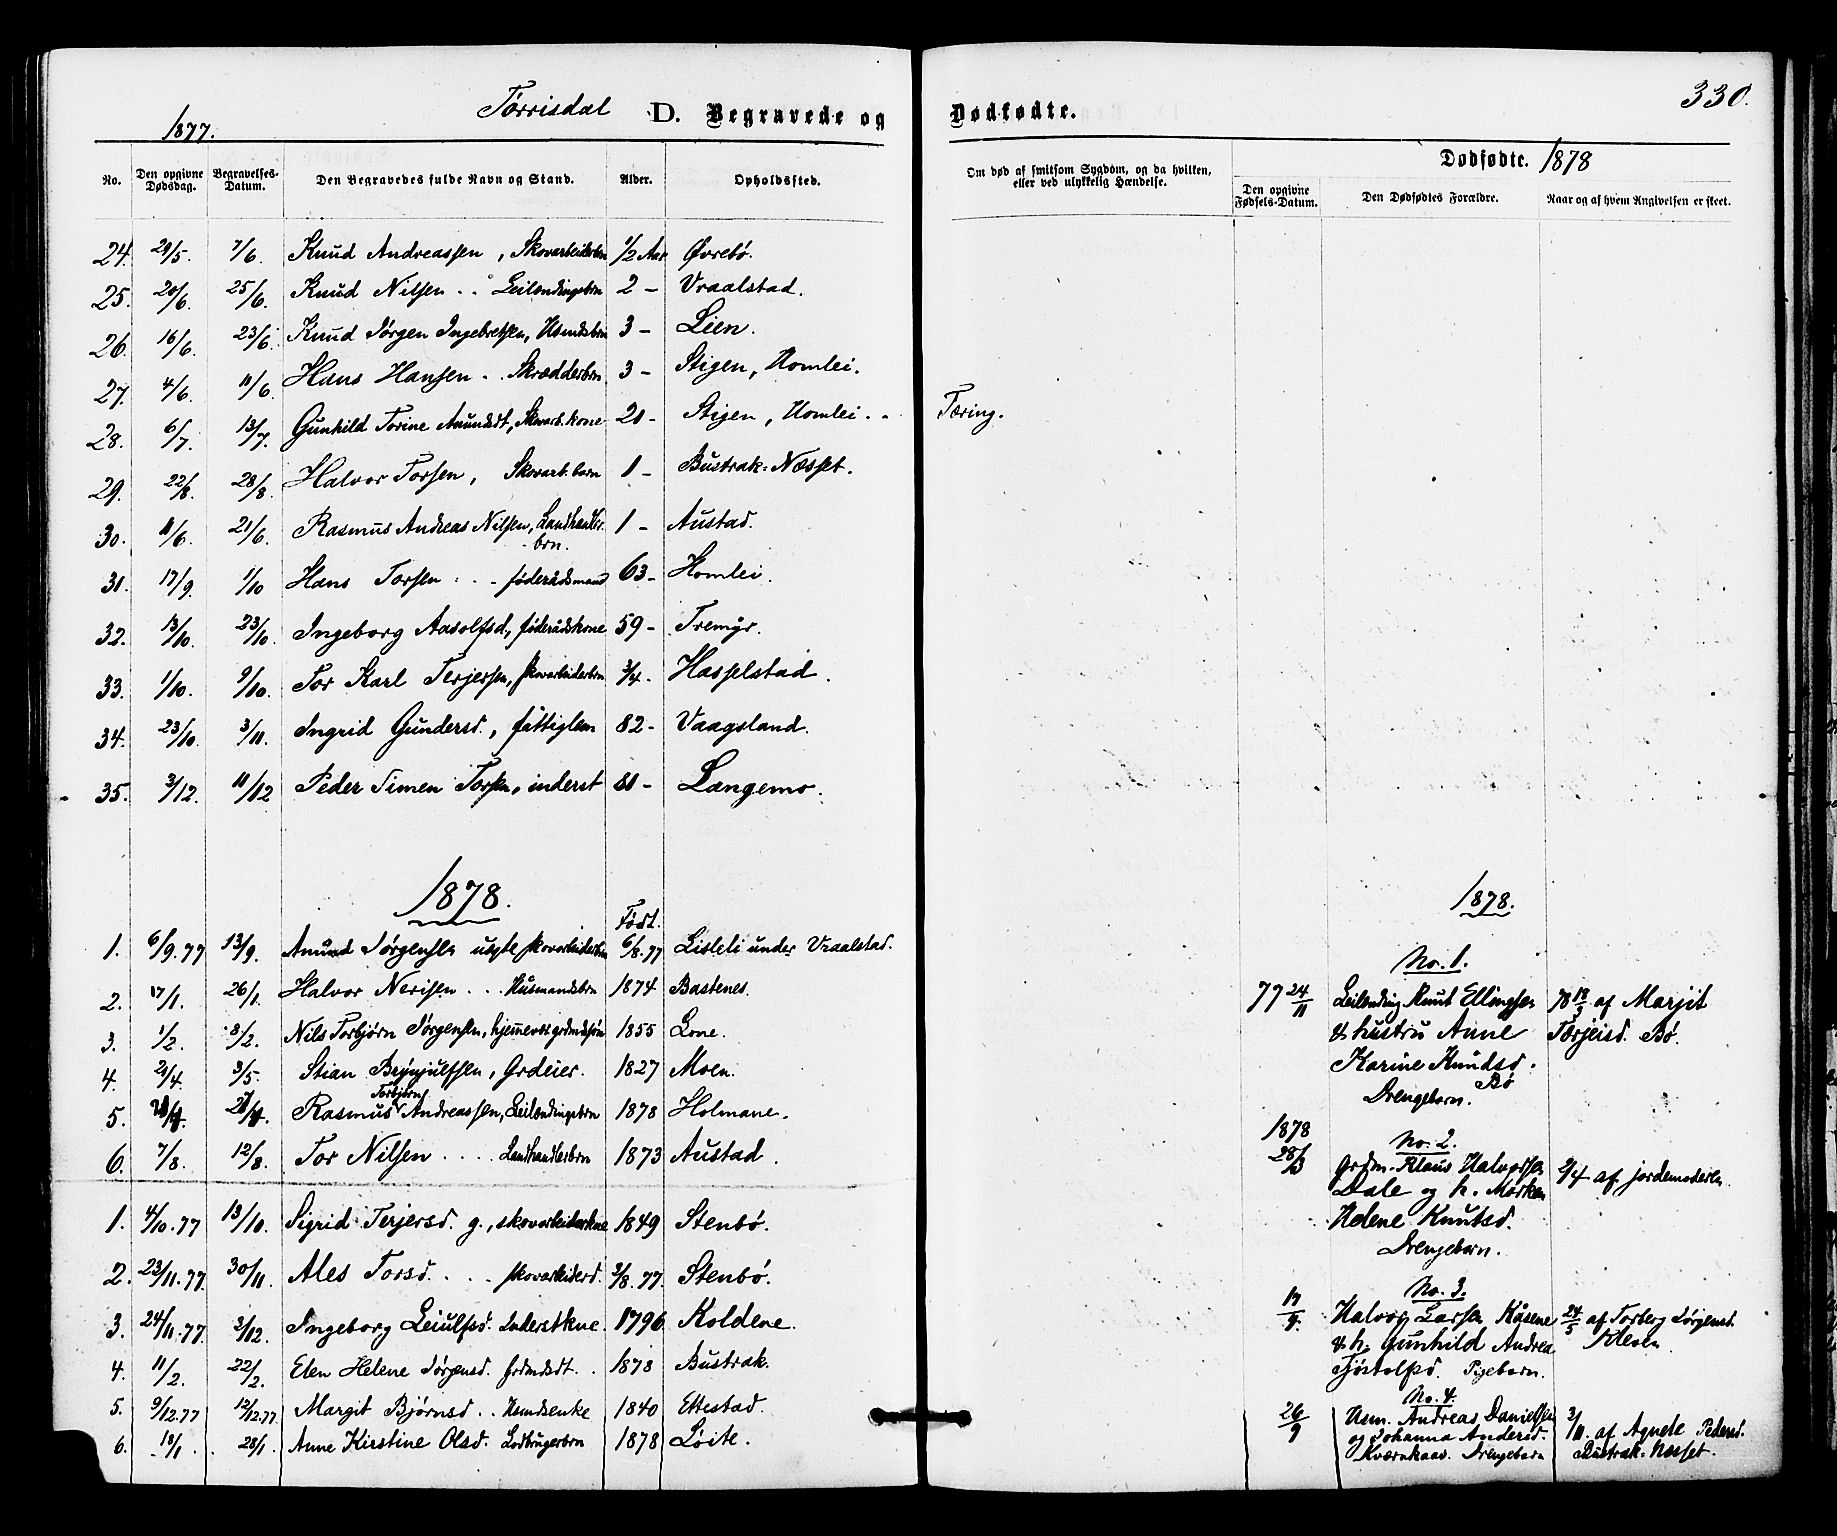 330.
1877.
Tørrisdal D. Begravede og Dødfødte.
No. Den opgivne Dødsdag. Begravelses-Datum. Den Begravedes fulde Navn og Stand. Alder. Opholdssted.
Om død af smitsom Sygdom, og da hvilken, eller ved ulykkelig Hændelse.
Dødfødte. 1878
Den opgivne Fødsels-Datum. Den Dødfødtes Forældre. Naar og af hvem Angivelsen er skeet.
24. 29/5. 7/6. Knud Andreassen, Skovarbeiderbn 1/2 Aar Øvrebø.
25. 20/6. 25/6. Knud Nilsen .. Leilændingsbrn 2 - Vraalstad.
26. 16/6. 23/6. Knud Jørgen Ingebretsen, Husmdsbrn 3 - Lien.
27. 4/6. 11/6. Hans Hansen .. Skrædderbrn 3 - Stigen, Homlei.
28. 6/7. 13/7. Gunhild Torine Amundsdt, Skovarb.kone 20 - Stigen, Homlei . . Tæring.
29. 22/8. 28/8. Halvor Torsen, Skovarb.barn 1 - Bustrak-Næsset.
30. 11/6. 21/6. Rasmus Andreas Nilsen, Landhandler-
brn. 1 - Austad.
31. 17/9. 1/10 Hans Torsen . . - føderådsmand 63 - Homlei.
32. 13/10. 23/10. Ingeborg Aasolfsd, føderådskone 59 - Tremyr.
33. 1/10. 9/10. Tor Karl Terjersen, skovarbeiderbrn 3/4 - Hasselstad.
34. 23/10. 3/11. Ingrid Gundersd., fattiglem 82 - Vaagsland.
35. 3/12. 11/12 Peder Simen Torsen, inderst 81 - Langemo.
1878.
Født.
1. 6/9.77 13/9. Amund Jørgensen uægte skovarbeiderbn 6/8.77 Lisleli under Vraalstad.
2. 17/1. 26/1. Halvor Nerisen . . . Husmandsbrn 1874 Bastenes.
3. 1/2. 8/2. Nils Torbjørn Jørgensen, hjemmevær. grdmdssøn 1855 Lone.
4. 21/4. 3/5. Stian Brynjulfsen, Grdeier. 1827 Moen.
5. Rasmus Torbjørn Andreassen, Leilændingsbrn 1878 Holmane.
6. 7/8. 12/8. Tor Nilsen . . . . Landhandlerbrn 1873 Austad.
1. 4/10.77 13/10. Sigrid Terjersd. g., skovarbeiderkne 1849 Stenbø.
2. 23/11.77. 30/11. Ales Torsd. . . . skovarbeiderd. 3/8.77. Stenbø.
3. 24/11.77 3/12. Ingeborg Leiulfsd. Inderstkne 1796 Koldene.
4. 11/2. 22/2. Elen Helene Jørgensd. grdmdsdt. . 1873 Bustrak.
5. 9/12.77 12/12.77. Margit Bjørnsd .. Husmdsenke 1840 Ettestad.
6. 18/1. 28/1. Anne Kirstine Olsd. Lodbrugerbrn 1878 Løite.
1878.
No. 1.
77 24/11 Leilænding Knut Ellingsen 78 18/3 af Marjit
& hustru Anne Tarjeisd. Bø.
Karine Knudsd.
Bø
Drengebarn.
1878
No. 2.
28/3 Grdm. Klaus Halvorsen 2/4 af jordemoderen.
Dale og h. Marken
Helene Knutsd.
Drengebarn.
No. 3.
17/9. Halvor Larsen Kåsene 24/5 af Torberg Jørgensd.
& h. Gunhild Andrea
Tjøstolfsd. Pigebarn.
No. 4.
26/9 Husm. Andreas Danielsen 3/11. af Agnete Pedersd.
og Johanna Andersd. Bustrak-Nesset.
Kværnkaas. Drengebarn